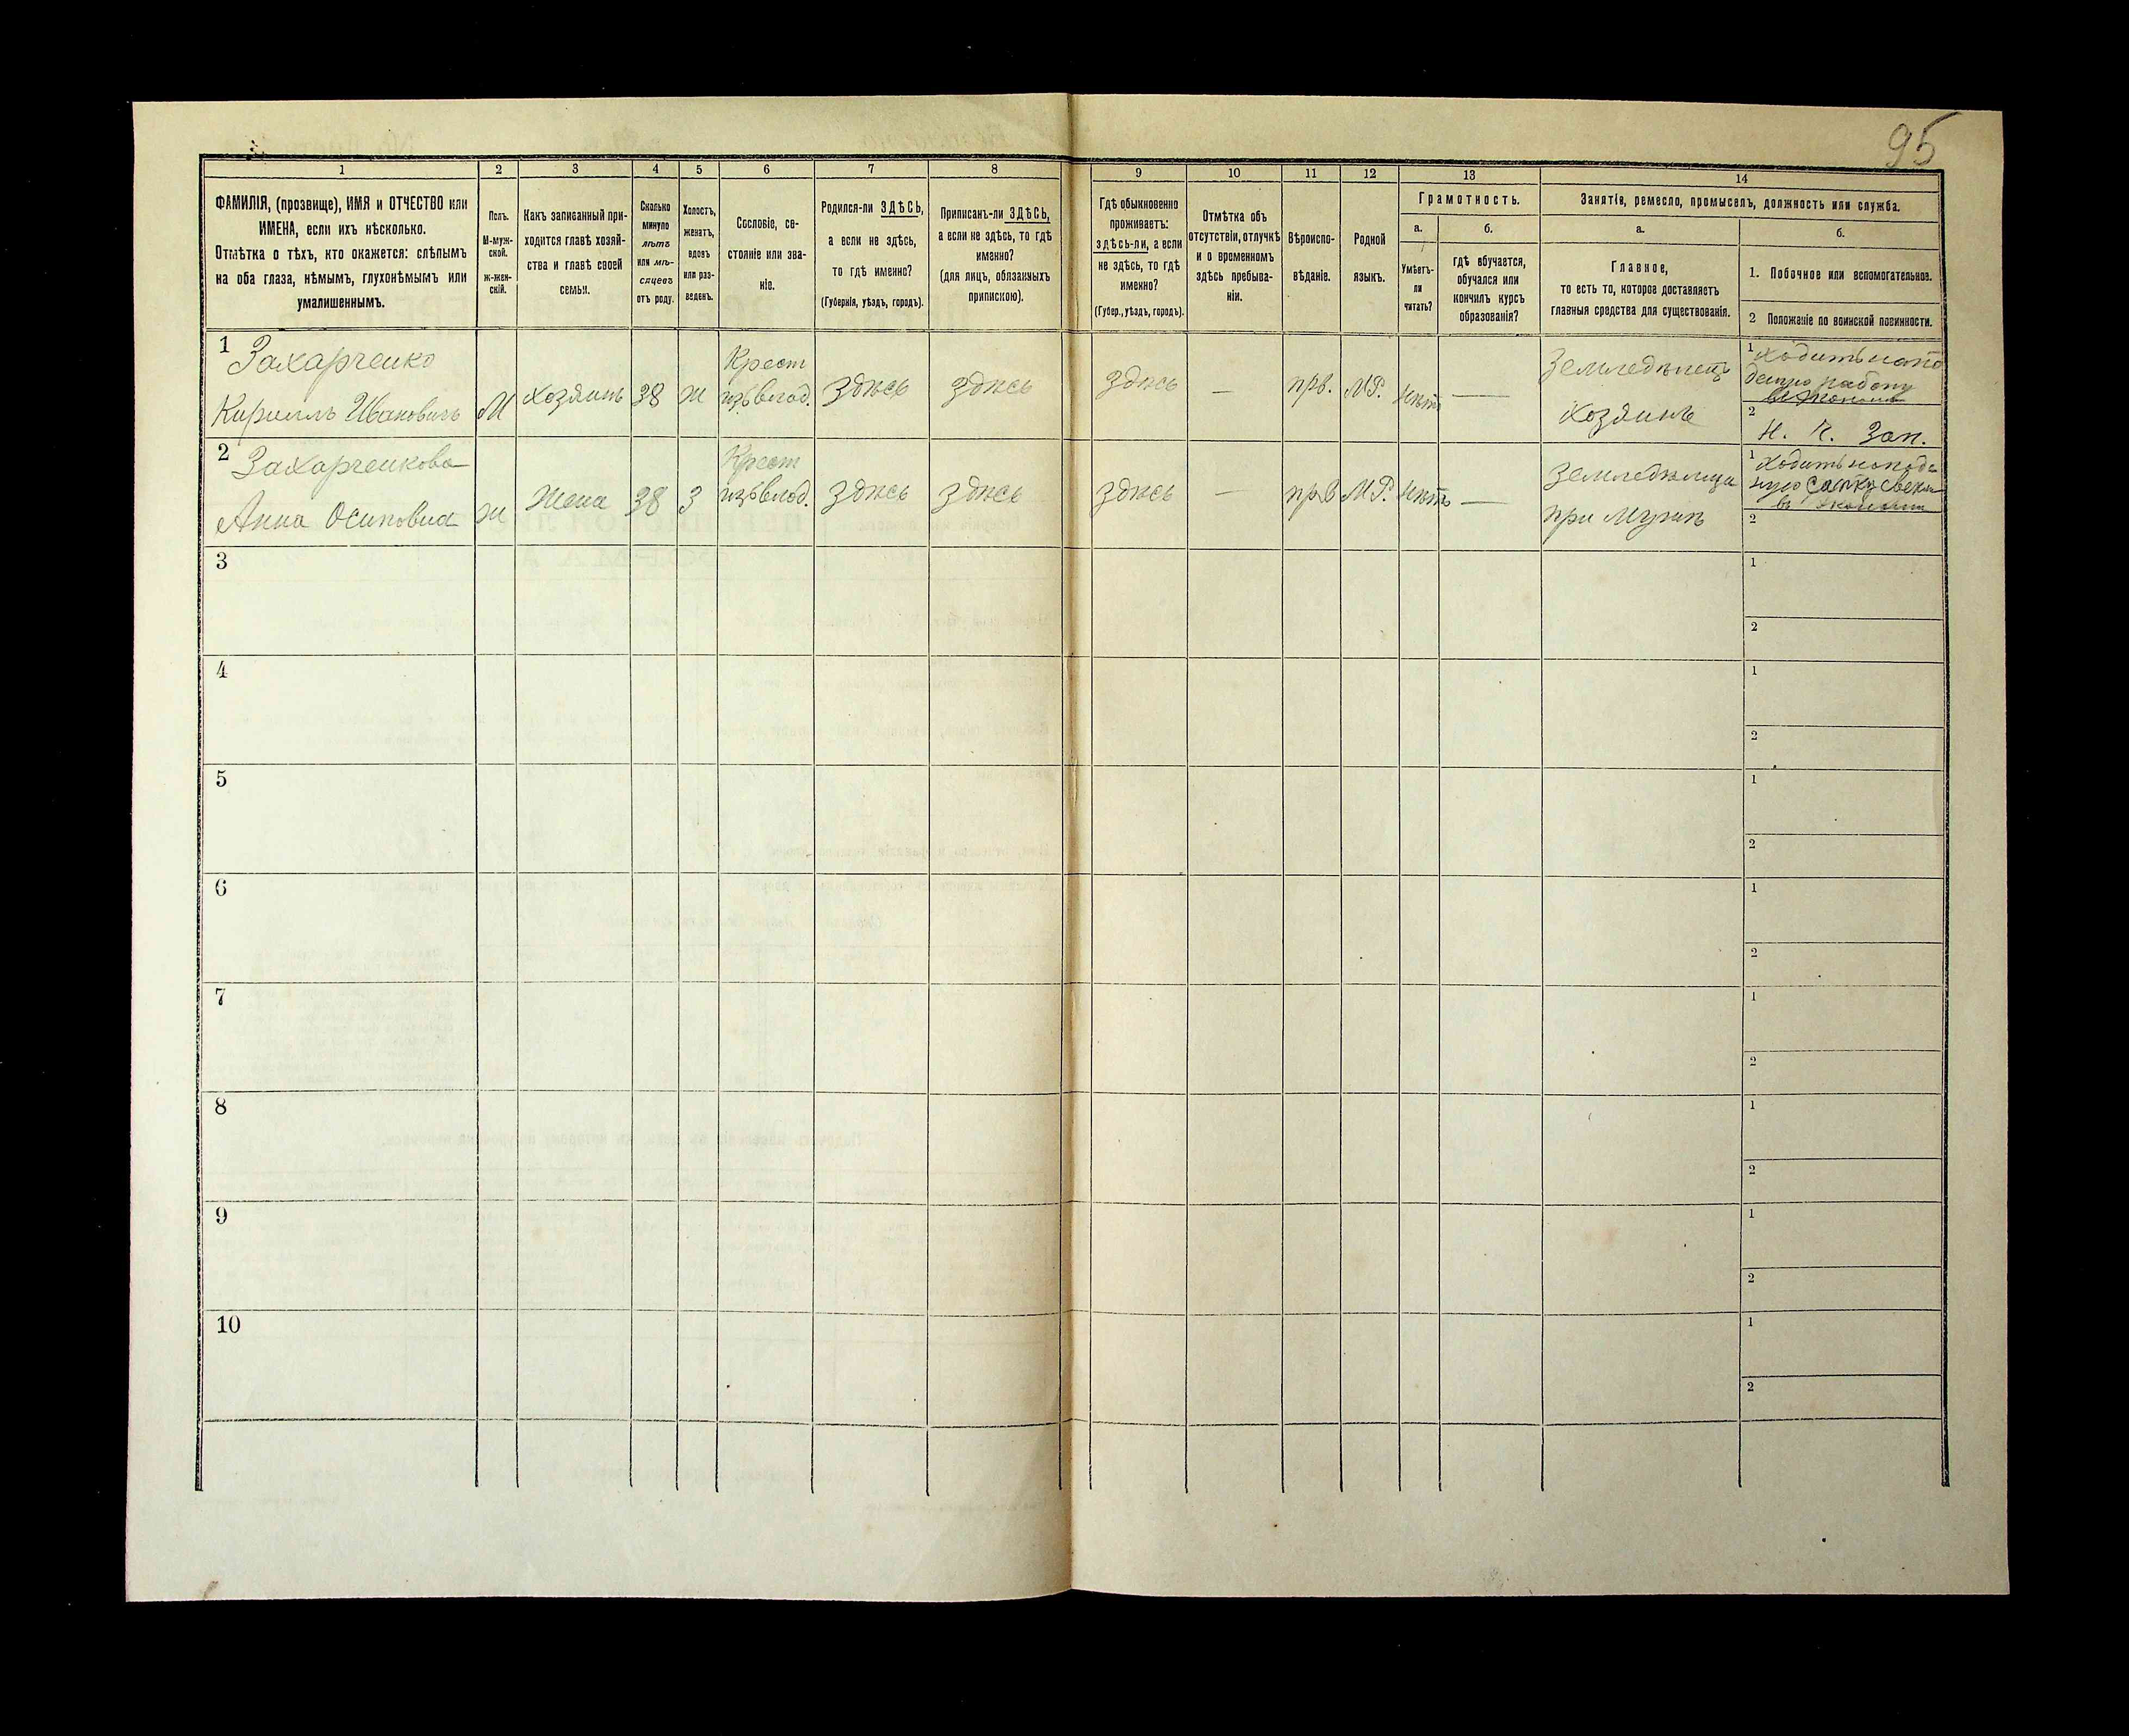 95
1 2 3 4 5 6 7 8 9 10 11 12 13 14
ФАМИЛІЯ, (прозвище), ИМЯ и ОТЧЕСТВО или
ИМЕНА, если ихъ нѣсколько.
Отмѣтка о тѣхъ, кто окажется: слѣпымъ
на оба глаза, нѣмымъ, глухонѣмымъ или
умалишеннымъ.
Полъ.
М-муж-
ской.
ж-жен-
скій.
Какъ записанный при-
ходится главѣ хозяй-
ства и главѣ своей
семьи.
Сколько
минуло
лѣтъ
или мѣ-
сяцевъ
отъ роду.
Холостъ,
женатъ,
вдовъ
или раз-
веденъ.
Сословіе, со-
стояніе или зва-
ніе.
Родился-ли ЗДѢСЬ,
а если не здѣсь,
то гдѣ именно?
(Губернія, уѣздъ, городъ).
Приписанъ-ли ЗДѢСЬ,
а если не здѣсь, то гдѣ
именно?
(для лицъ, обязанныхъ
припискою).
Гдѣ обыкновенно
проживаетъ:
здѣсь-ли, а если
не здѣсь, то гдѣ
именно?
(Губер., уѣздъ, городъ).
Отмѣтка объ
отсутствіи, отлучкѣ
и о временномъ
здѣсь пребыва-
ніи.
Вѣроиспо-
вѣданіе.
Родной
языкъ.
Грамотность.
а.
Умѣетъ-
ли
читать?
б.
гдѣ обучается,
обучался или
кончилъ курсъ
образованія?
Занятіе, ремесло, промыселъ, должность или служба.
а.
Главное,
то есть то, которое доставляетъ
главныя средства для существованія.
б.
1. Побочное или вспомогательное.
2 Положеніе по воинской повинности.
1 Захарченко
Кириллъ Ивановичъ
М
хозяинъ
38
ж
Крест
изъ влад.
здѣсь
здѣсь
здѣсь
—
прв.
М.Р.
нѣтъ
—
Земледѣлецъ
хозяинъ
1 ходить на по
денную работу
2
Н. К. Зап.
2 Захарченкова
Анна Осиповна
ж
Жена
38
З
Крест
изъ влад.
здѣсь
здѣсь
здѣсь
—
прв
М.Р.
нѣтъ
—
Земледѣлица
при мужѣ
1 ходить на поде
въ
2
3
1
2
4
1
2
5
1
2
6
1
2
7
1
2
8
1
2
9
1
2
10
1
2